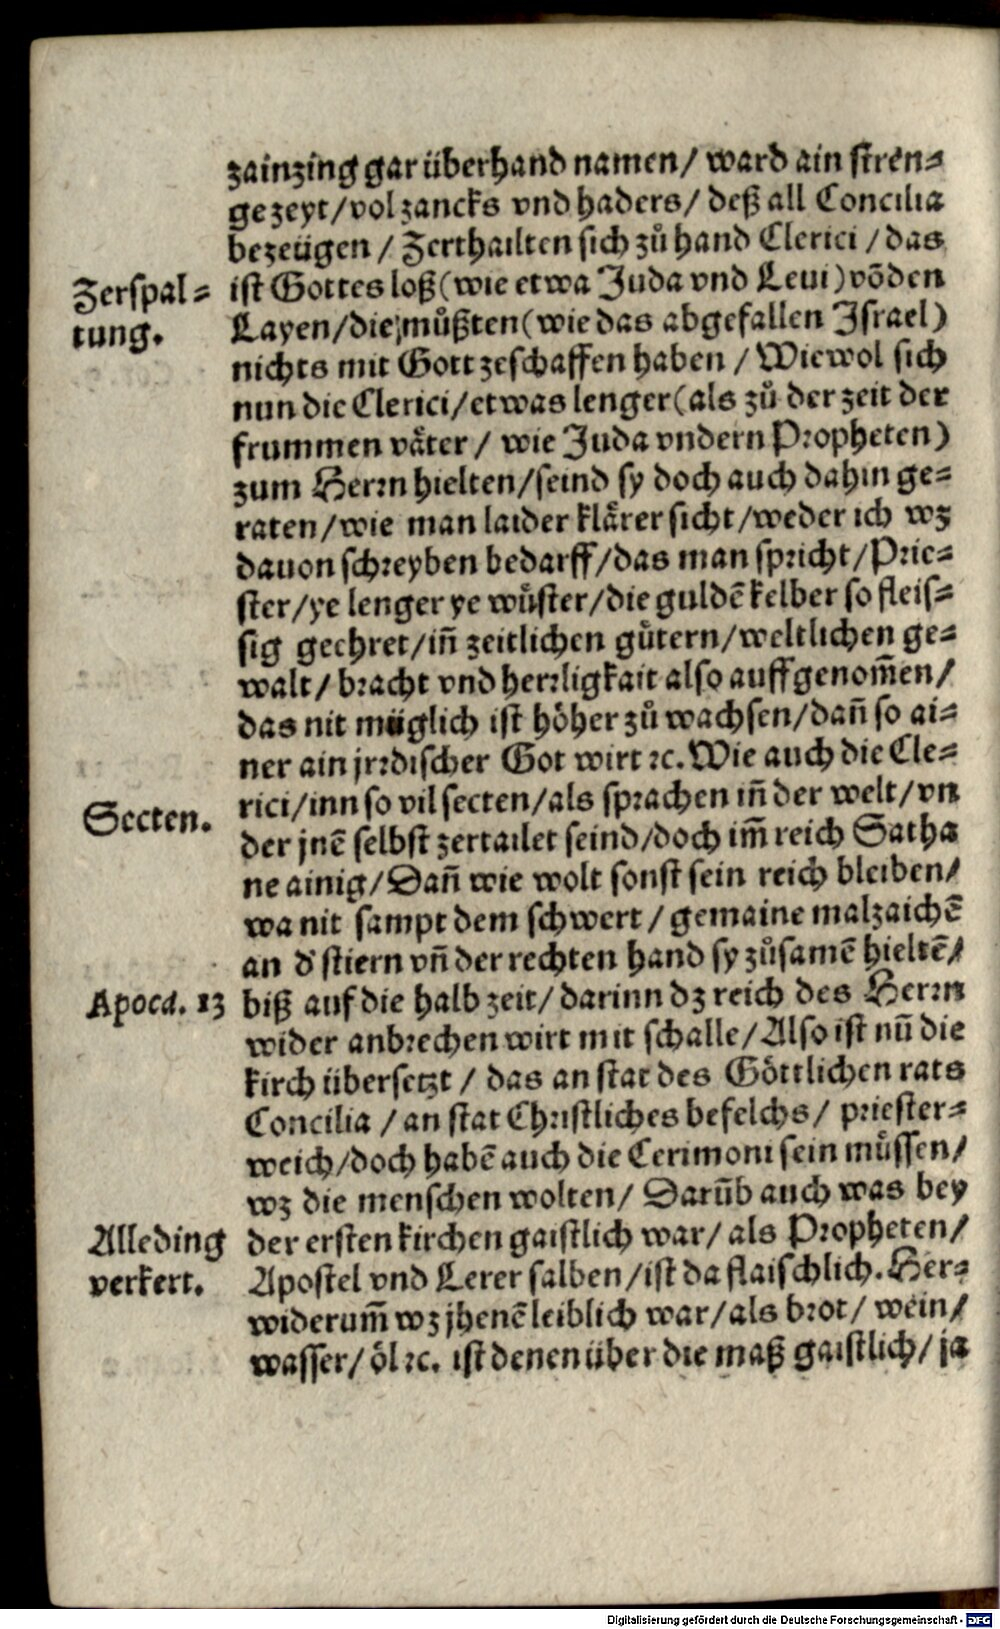 zainzing gar überhand namen/ ward ain stren-
ge zeyt/vol zancks vnd haders/ deß all Concilia
bezeügen / Zerthailten sich zů hand Clerici /das
Zerspal-
tung.
ist Gottes loß(wie etwa Juda vnd Leui)võ den
Layen/die můßten(wie das abgefallen Israel)
nichts mit Gott zeschaffen haben / Wiewol sich
nun die Clerici/etwas lenger(als zů der zeit der
frummen vaͤter / wie Juda vndern Propheten)
zum Herrn hielten/seind sy doch auch dahin ge-
raten/wie man laider klaͤrer sicht/weder ich wz
dauon schreyben bedarff/das man spricht/Prie-
ster/ye lenger ye wuͤster/die guldē kelber so fleis-
sig geehret/iñ zeitlichen guͤtern/weltlichen ge-
walt/ bracht vnd herrligkait also auffgenom̃en/
das nit müglich ist hoͤher zů wachsen/dañ so ai-
ner ain jrrdischer Got wirt ꝛc. Wie auch die Cle-
Secten.
rici/inn so vil secten/als sprachen iñ der welt/vn
der jnē selbst zertailet seind/doch im̃ reich Satha
ne ainig/Dañ wie wolt sonst sein reich bleiben/
wa nit sampt dem schwert / gemaine malzaichē
an d' stiern vñ der rechten hand sy zůsamē hieltē/
Apoca. 13
biß auf die halb zeit/ darinn dz reich des Herrn
wider anbrechen wirt mit schalle/Also ist nũ die
kirch übersetzt / das an stat des Goͤttlichen rats
Concilia /an stat Christliches befelchs/ priester-
weich/doch habē auch die Cerimoni sein muͤssen/
wz die menschen wolten/ Darũb auch was bey
Alleding
verkert.
der ersten kirchen gaistlich war/ als Propheten/
Apostel vnd Lerer salben/ist da flaischlich. Her-
widerum̃ wz jhenē leiblich war/als brot/ wein/
wasser/ oͤl ꝛc. ist denen über die maß gaistlich/ ja
Digitalisierung gefördert durch die Deutsche Forschungsgemeinschaft - DFG